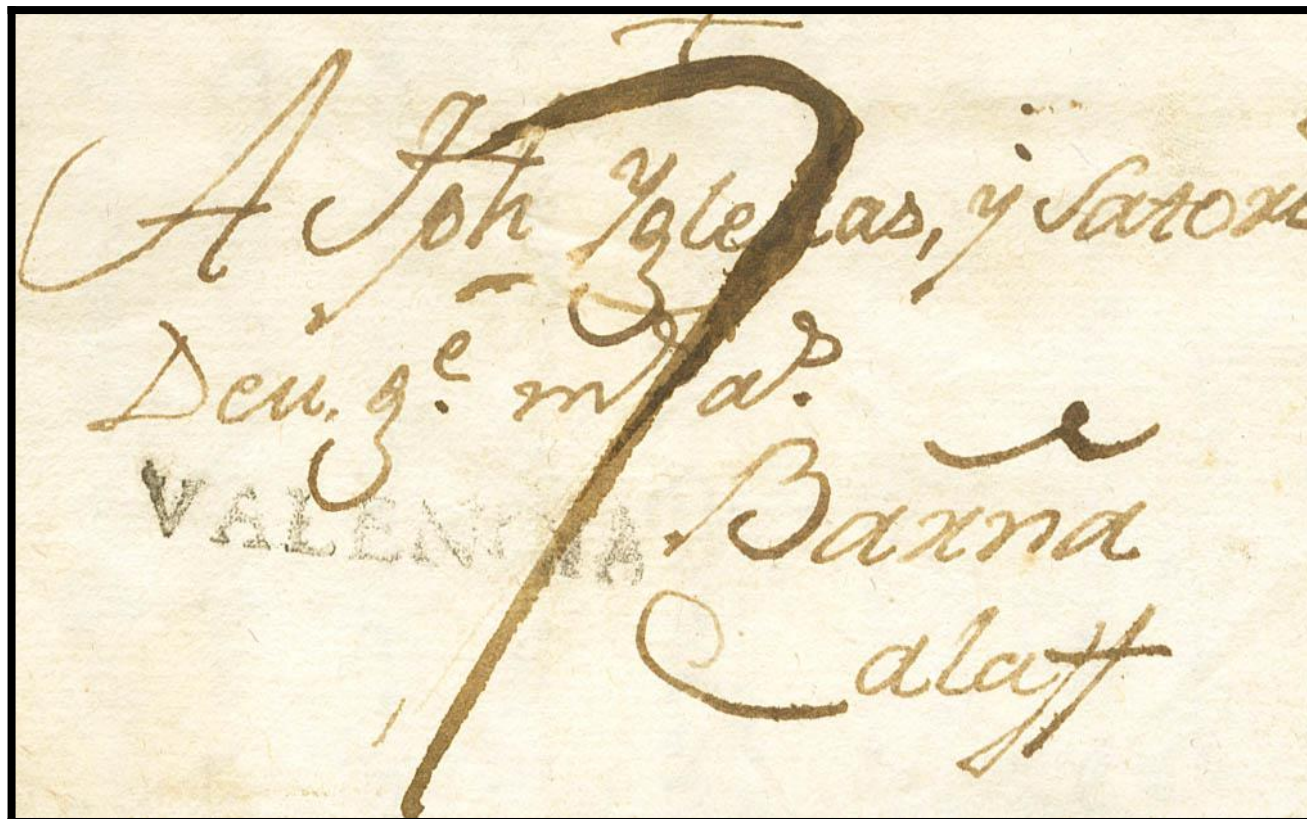 A Jph Yglesias, y Satorr
Deu. g.e m a.s
VALENCIA
Barna
Calaff
7